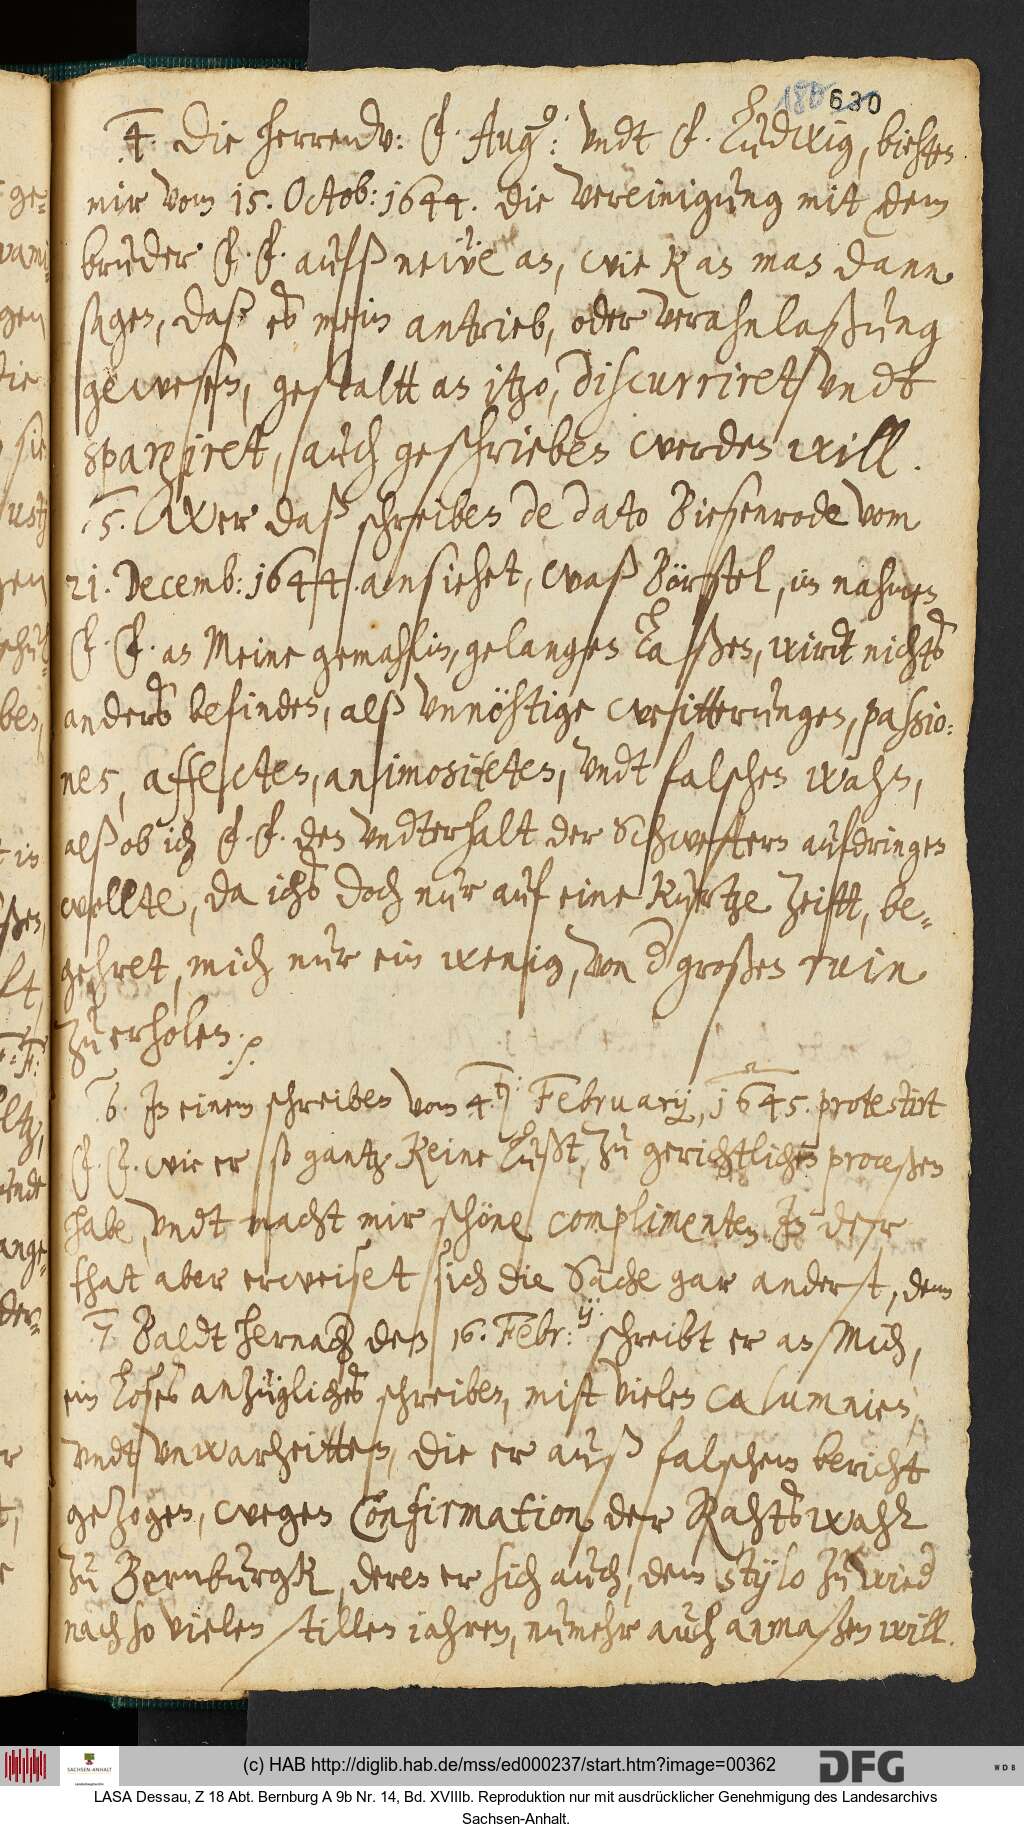 180 630
4. Die herren v: F. Aug9: vndt F. Ludwig, biehten
mir vom 15. Octob: 1644. die vereinigung mit dem
bruder F. F. aufß neẅe an, wie kan man dann
sagen, daß es mein antrieb, oder verahnlaßung
gewesen, gestaltt an itzo, discurriret, vndt
spargiret, auch geschrieben werden will.
5. Wer daß schreiben de dato Biesenrode vom
21. Decemb: 1644. ansiehet, waß Börstel, in nahmen
F. F. an Meine gemahlin, gelangen laßen, wirdt nichts
anders befinden, alß vnnöhtige verbitterungen, passio:
nes, affecten, animositeten, vndt falschen wahn,
alß ob ich F. F. den vndterhalt der Schwestern aufdringen
wollte, da ichs doch nur auf eine kurtze Zeitt, be-
gehret, mich nur ein wenig, von d großen ruin
zu erholen. &#x2e;
6. In einem schreiben vom 4. February, 1645. protestirt
F. F. wie er so gantz keine Lußt, zu gerichtlichen proceßen
habe, vndt macht mir schöne complimenten. In der
that aber erweiset sich die Sache gar anderst, denn
7. Baldt hernach den 16. Febr: ij. schreibt er an Mich,
ein loses anzügliches schreiben, mitt vielen calumnien,
vndt vnwarheitten, die er auß falschem bericht
gezogen, wegen Confirmation der Rahtswahl
zu Bernburgk, deren er sich auch, dem stylo zu wied
nach so vielen stillen iahren, numehr auch anmaßen will.
ge-
gen
die
sie
ben,
ange-
der-
(c) HAB http://diglib.hab.de/mss/ed000237/start.htm?image=00362
DFG
WDB
SACHSEN-ANHALT
LASA Dessau, Z 18 Abt. Bernburg A 9b Nr. 14, Bd. XVIIIb. Reproduktion nur mit ausdrücklicher Genehmigung des Landesarchivs
Sachsen-Anhalt.